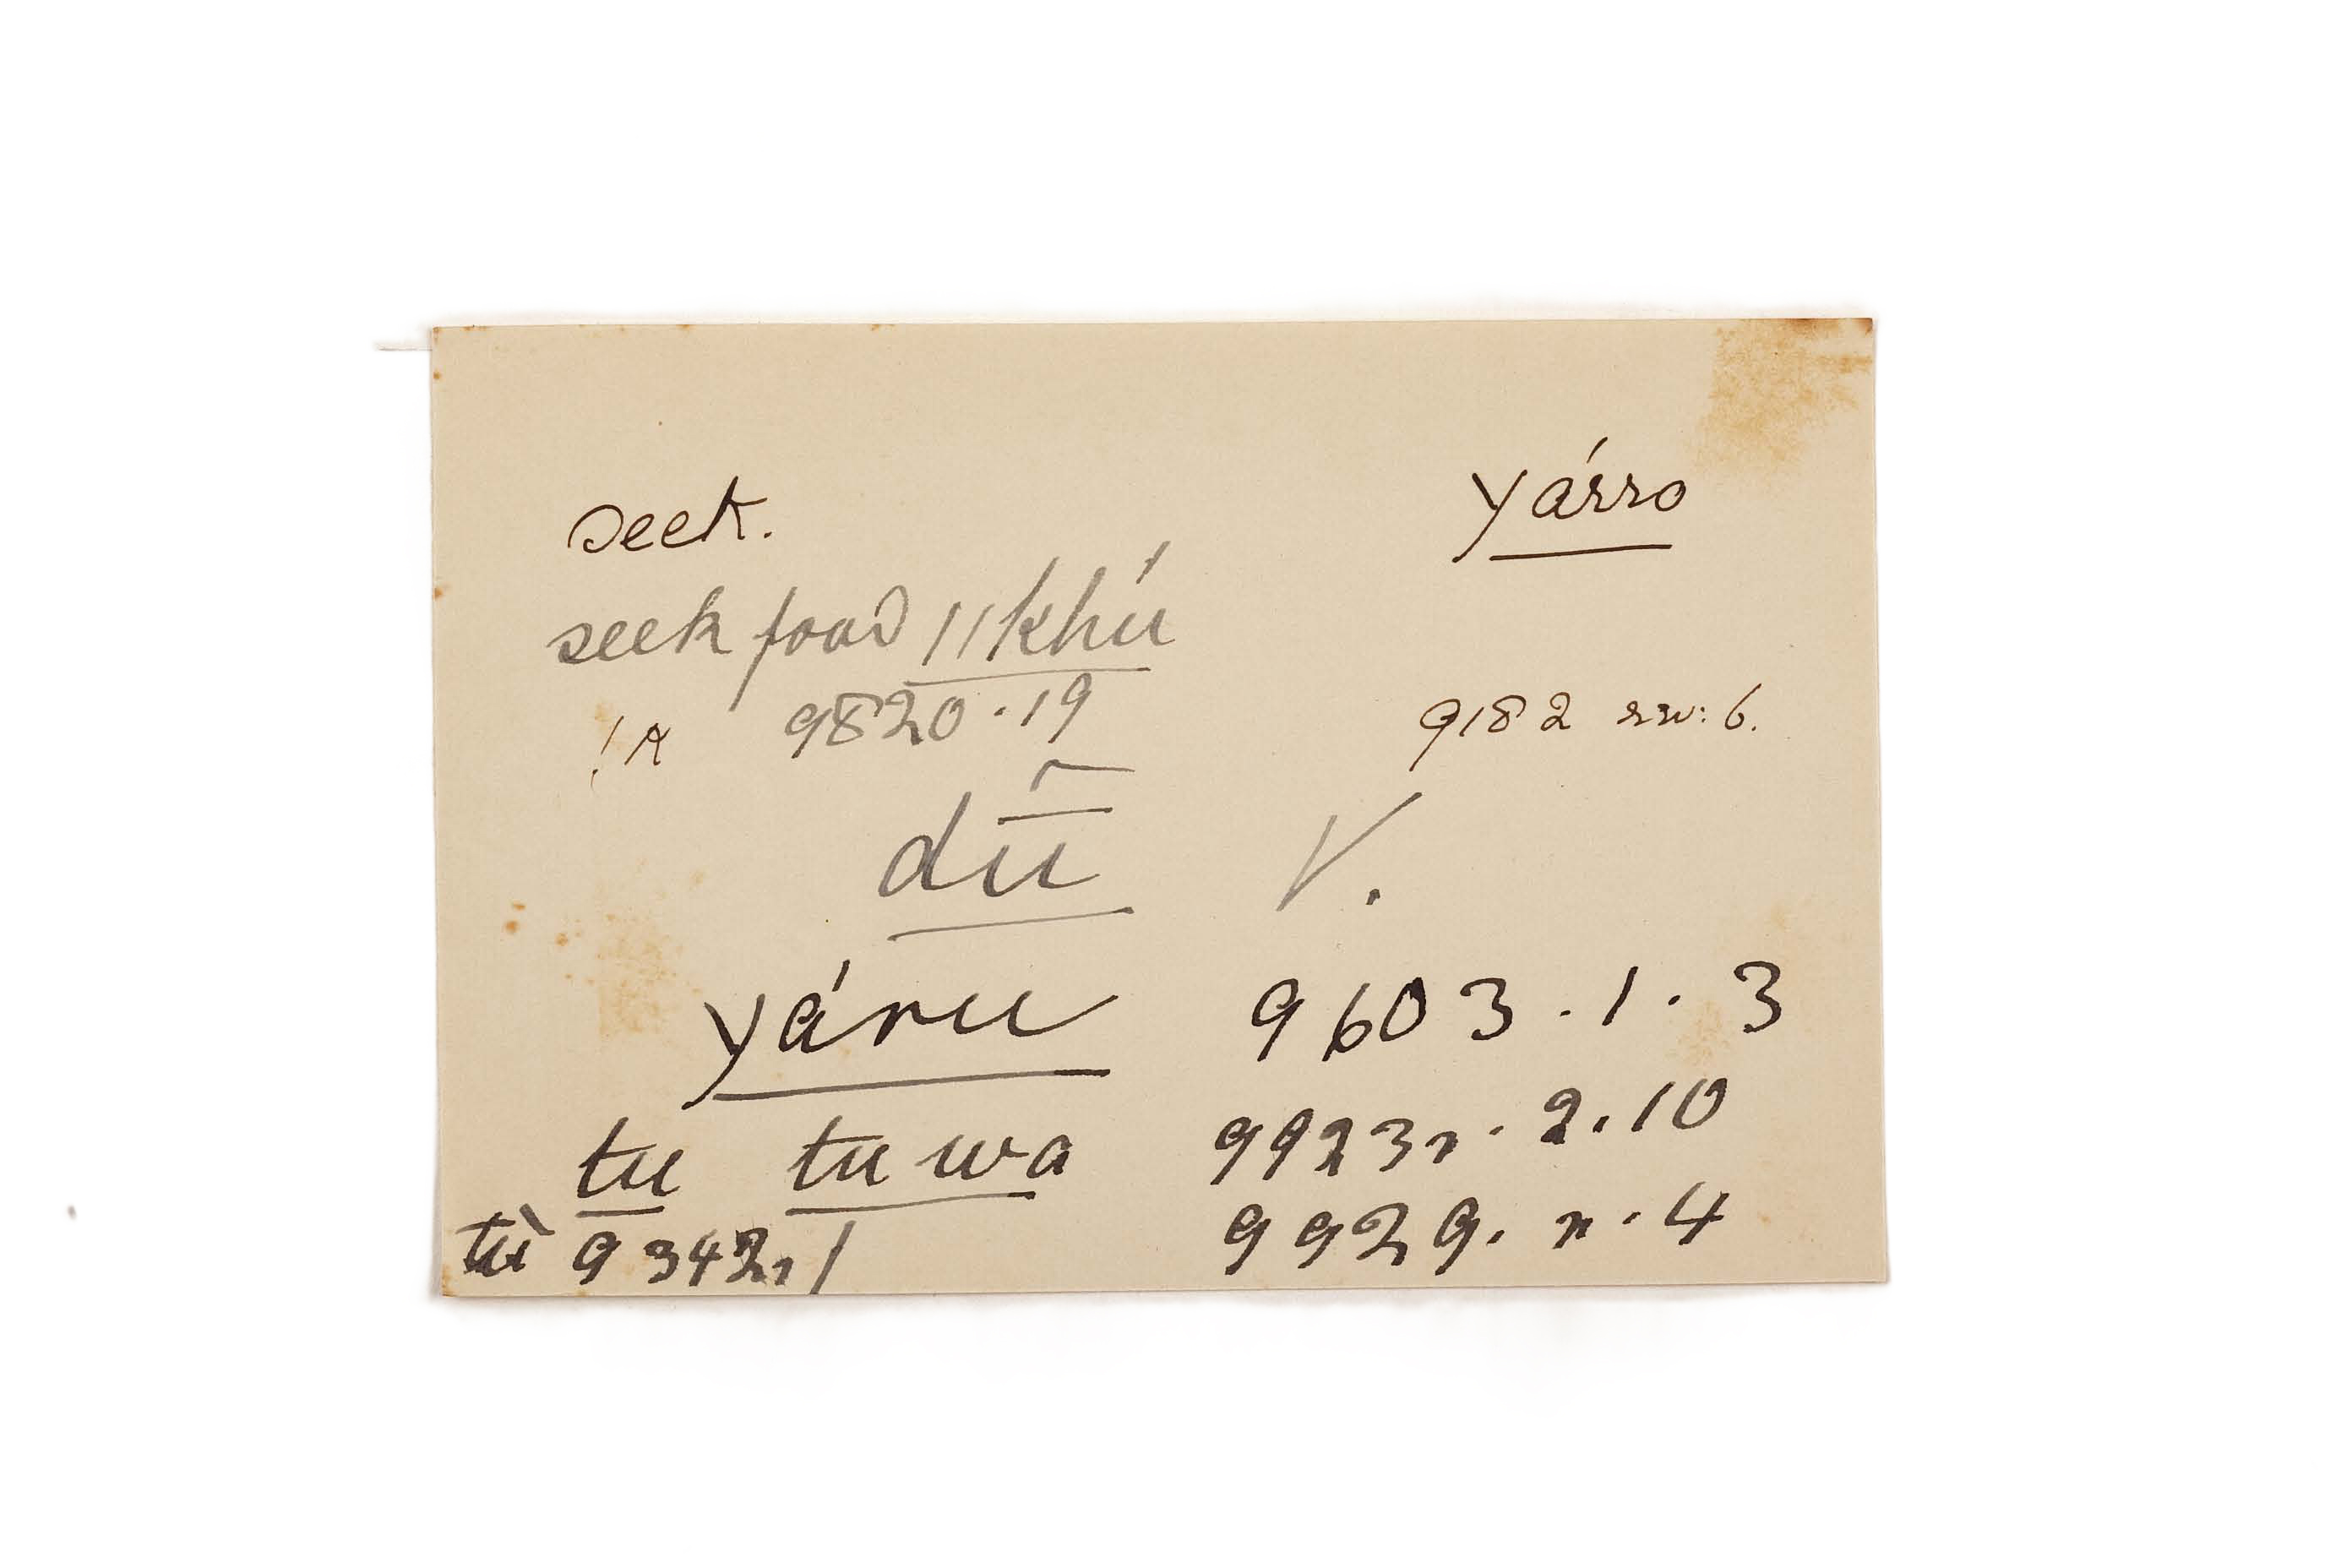 seek. yárro
seek food ||khú
!A 9820.19 9182 rev: 6.
dū̃ V.
yáru 9603.1.3
tu tuwa 9923r.2.10
9342r1 9929.r.4